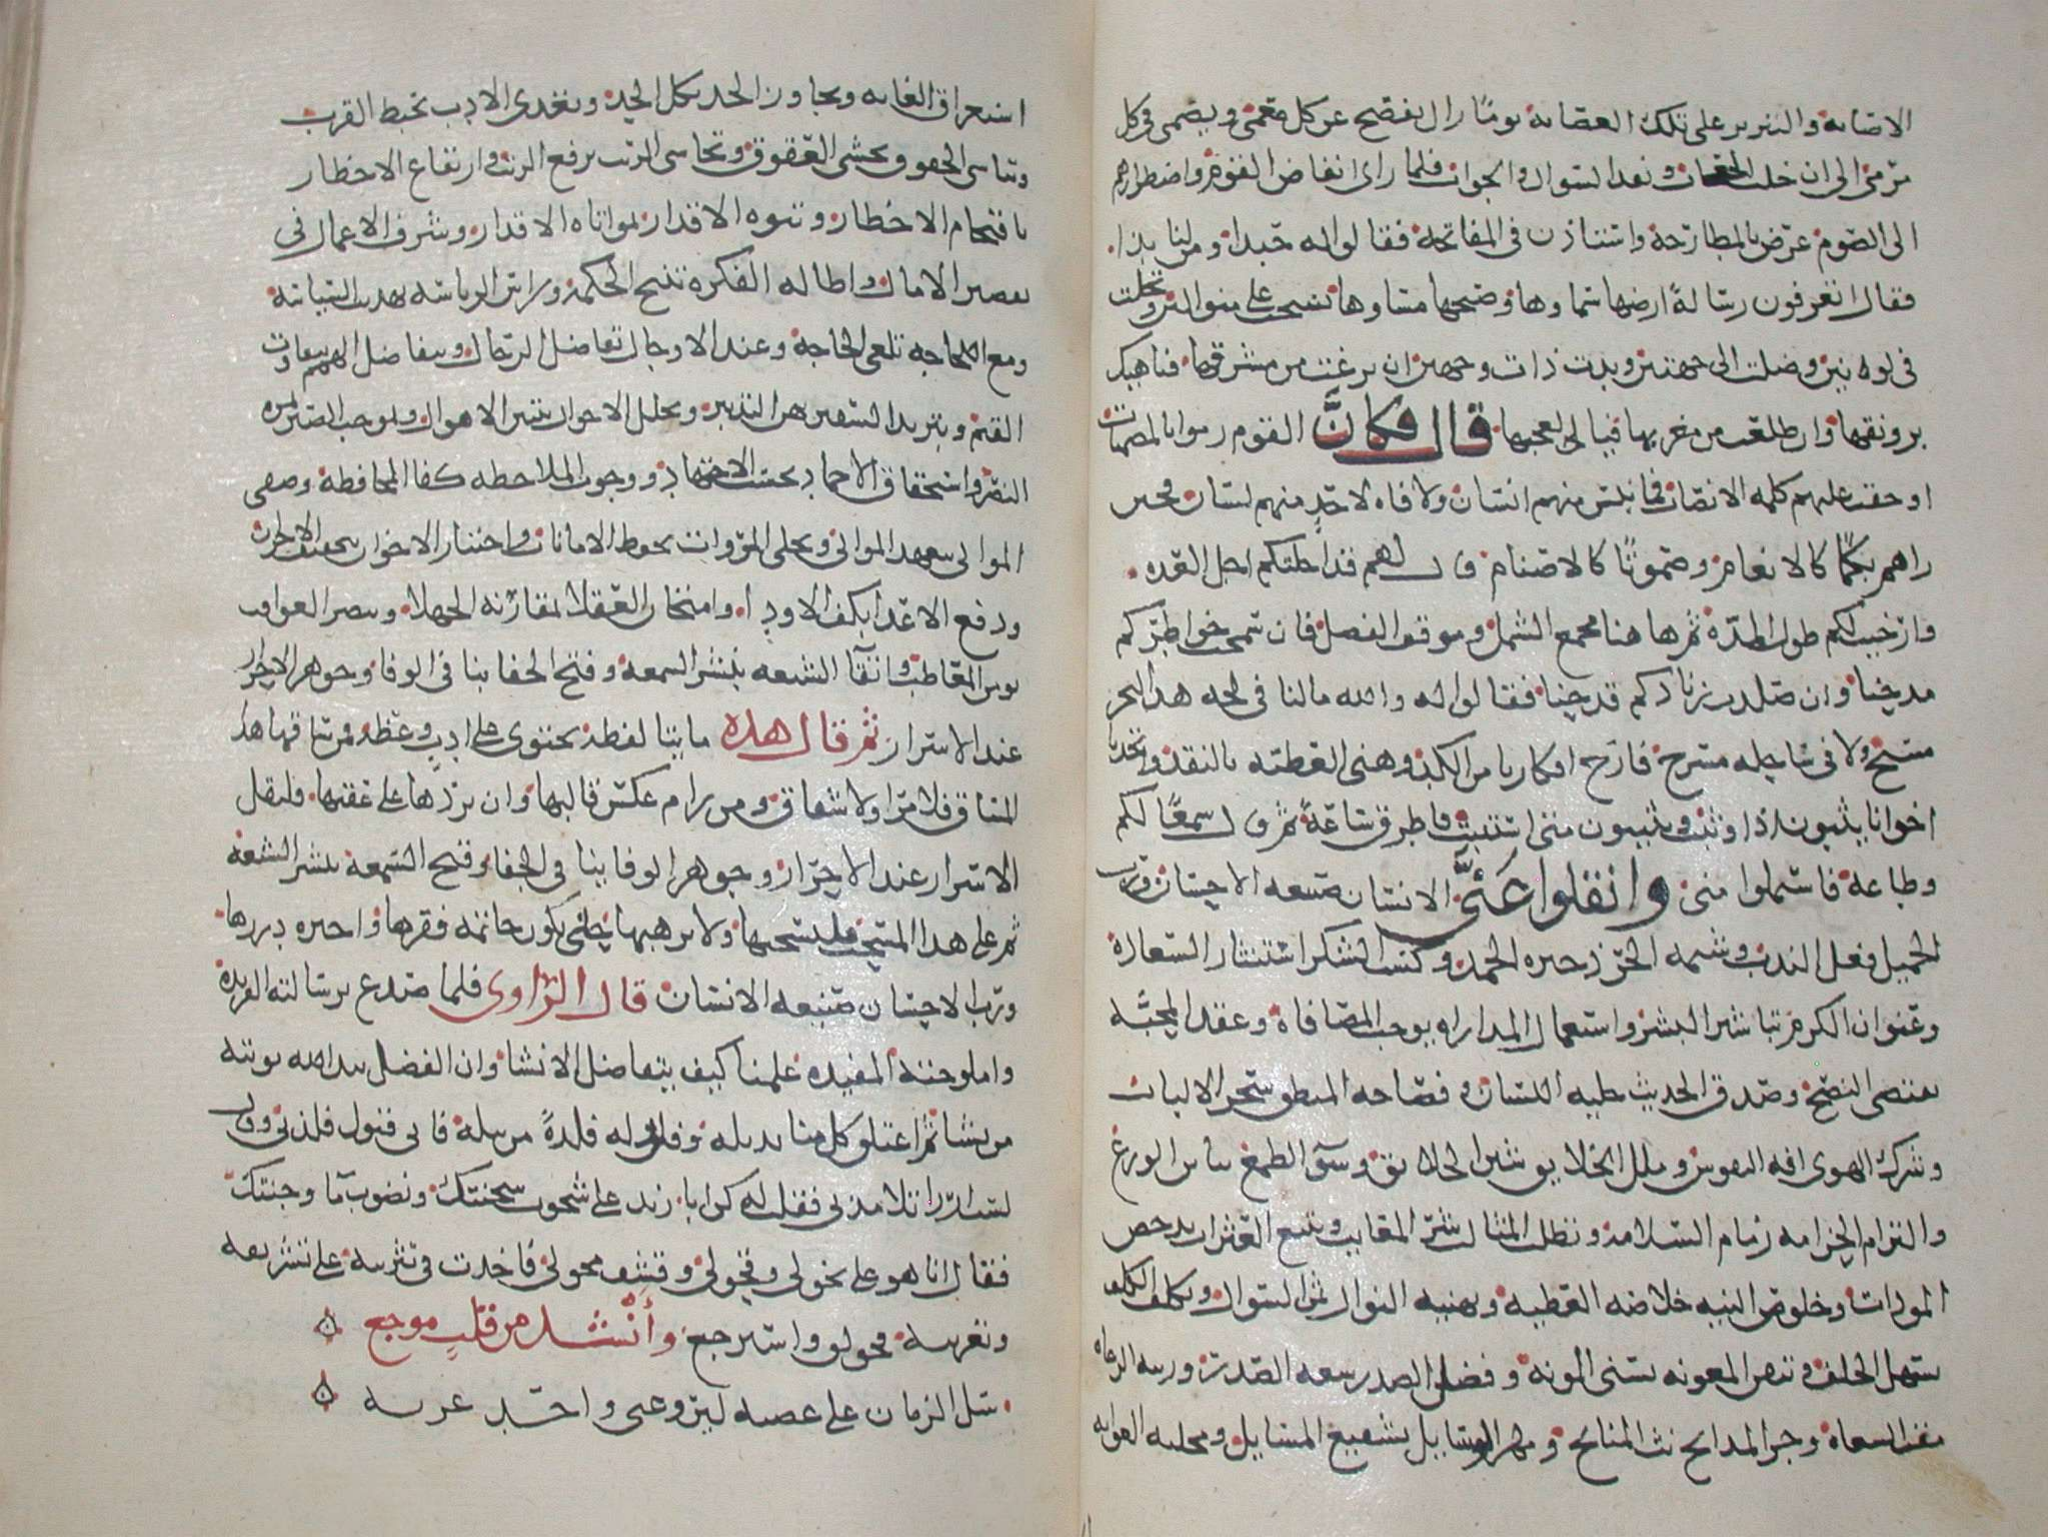 الاصابه والتبريز على تلك العصابة يوما زال يفضح عن كل معمى ويصمى في كل
مرمى الى ان خلت الجعاب ونفد السوال والجواب فلما راى انفاض القوم واضطرارهم
الى الصوم عرض بالمطارحة واستاذن في المفاتحة فقالوا له حبذا ومن لنا بذا
فقال اتعرفون رسالة ارضها سماوها وضحها مساوها نسجت على منوالين وتجلت
في لونين وصلت الى جهتين وبدت ذات وجهين ان بزغت من مشرقها فناهيك
برونقها وان طلعت من مغربها فيا لعجبها قال فكأن القوم رموا بالصمات
او حقت عليهم كلمه الانصات فما نبس منهم انسان ولا فاه لاحد منهم لسان فحين
راهم بكما كالانعام وصموتا كالاصنام قال لهم قد اجلتكم اجل العده
وارخيت لكم طول المدة ثم ها هنا مجمع الشمل وموقف الفصل فان سمحت خواطركم
مدحنا وان صلدت زنادكم قدحنا فقالوا له والله مالنا في لجه هذا البحر
مسبح ولا في ساحله مسرح فارح افكارنا من الكد وهنى العطية بالنقد واتخذنا
اخوانا يثبون اذا وثبت ويثيبون متى استثبت فاطرق ساعة ثم قال سمعا لكم
وطاعة فاستملوا منى وانقلوا عنى الانسان صنيعه الاحسان ورب
الجميل فعل الندب وشيمه الحر ذخيره الحمد وكسب الشكر استثمار السعادة
وعنوان الكرم تباشير البشر واستعمال المداراه يوجب المصافاة وعقد المحبه
يقتضى النصح وصدق الحديث حليه اللسان وفصاحه المنطق سحر الالباب
وشرك الهوى افه النفوس وملل الخلايق شين الخلائق وسوء الطمع يباين الورع
والتزام الحزامه زمام السلامة وتطلب المثالب شر المعايب وتتبع العثرات يدحض
المودات وخلوص النيه خلاصه العطيه وتهنيه النوال ثمن السوال وتكلف الكلف
يسهل الخلف وتيقن المعونه يسنى المونة وفضل الصدر سعه الصدر وزينه الرعاه
مقت السعاة وجزا المدايح بث المنايح ومهر الوسايل تشفيع المسايل ومجلبه الغوايه
استغراق الغايه وتجاوز الحد يكل الحد وتعدى الادب يحبط القرب
وتناسى الحقوق ينشى العقوق وتحاشى الريب يرفع الرتب وارتفاع الاخطار
باقتحام الاخطار وتنوه الاقدار بمواتاة الاقدار وشرف الاعمال في
تقصير الامال واطاله الفكرة تنقيح الحكمة وراس الرياسه تهذيب السياسة
ومع اللجاجه تلغى الحاجة وعند الاوجال تفاضل الرجال وبتفاضل الهمم تتفاوت
القيم وبتزيد السفير يهن التدبير وبخلل الاحوال تتبين الاهوال وبموجب الصبر ثمرة
النصر واستحقاق الاحماد بحسب الاجتهاد ووجوب الملاحظه كفا المحافظة وصفى
الموالى بتعهد الموالى وتحلى المروات بحفظ الامانات واختبار الاخوان بتخفيف الاحزان
ودفع الاعدا بكف الاودا وامتحان العقلا بمقارنه الجهلا وتبصر العواقب
يومن المعاطب واتقآ الشنعه ينشر السمعه وفتح الجفا ينافى الوفا وجوهر الاحرار
عند الاسرار ثم قال هذه مايتا لفظة تحتوى على ادب وعظه فمن ساقها هذا
المساق فلا مرا ولا شقاق ومن رام عكس قالبها وان يردها على عقبها فليقل
الاسرار عند الاحرار وجوهر الوفا ينافى الجفا وقبح السمعة ينشر الشنعة
ثم على هذا المسحب فليسحبها ولا يرهبها حتى يكون خاتمه فقرها واخره دررها
ورب الاحسان صنيعه الانسان قال الراوى فلما صدع برسالته الفريدة
واملوحته المفيده علمنا كيف يتفاضل الانشا وان الفضل بيد الله يوتيه
من يشا ثم اعتلق كل منا بذيله وفلذ له فلذة من نيله فابى قبول فلذتى وقال
لست ارزا تلامذتى فقلت له كن ابا زيد على شحوب سحنتك ونضوب مآ وجنتك
فقال انا هو على نحولى وقحولى وقشف محولى فاخذت في تثريبه على تشريقه
وتغريبه فحولق واسترجع وأنشد من قلب موجع
سل الزمان على عضبه ليروعنى واحد غربه